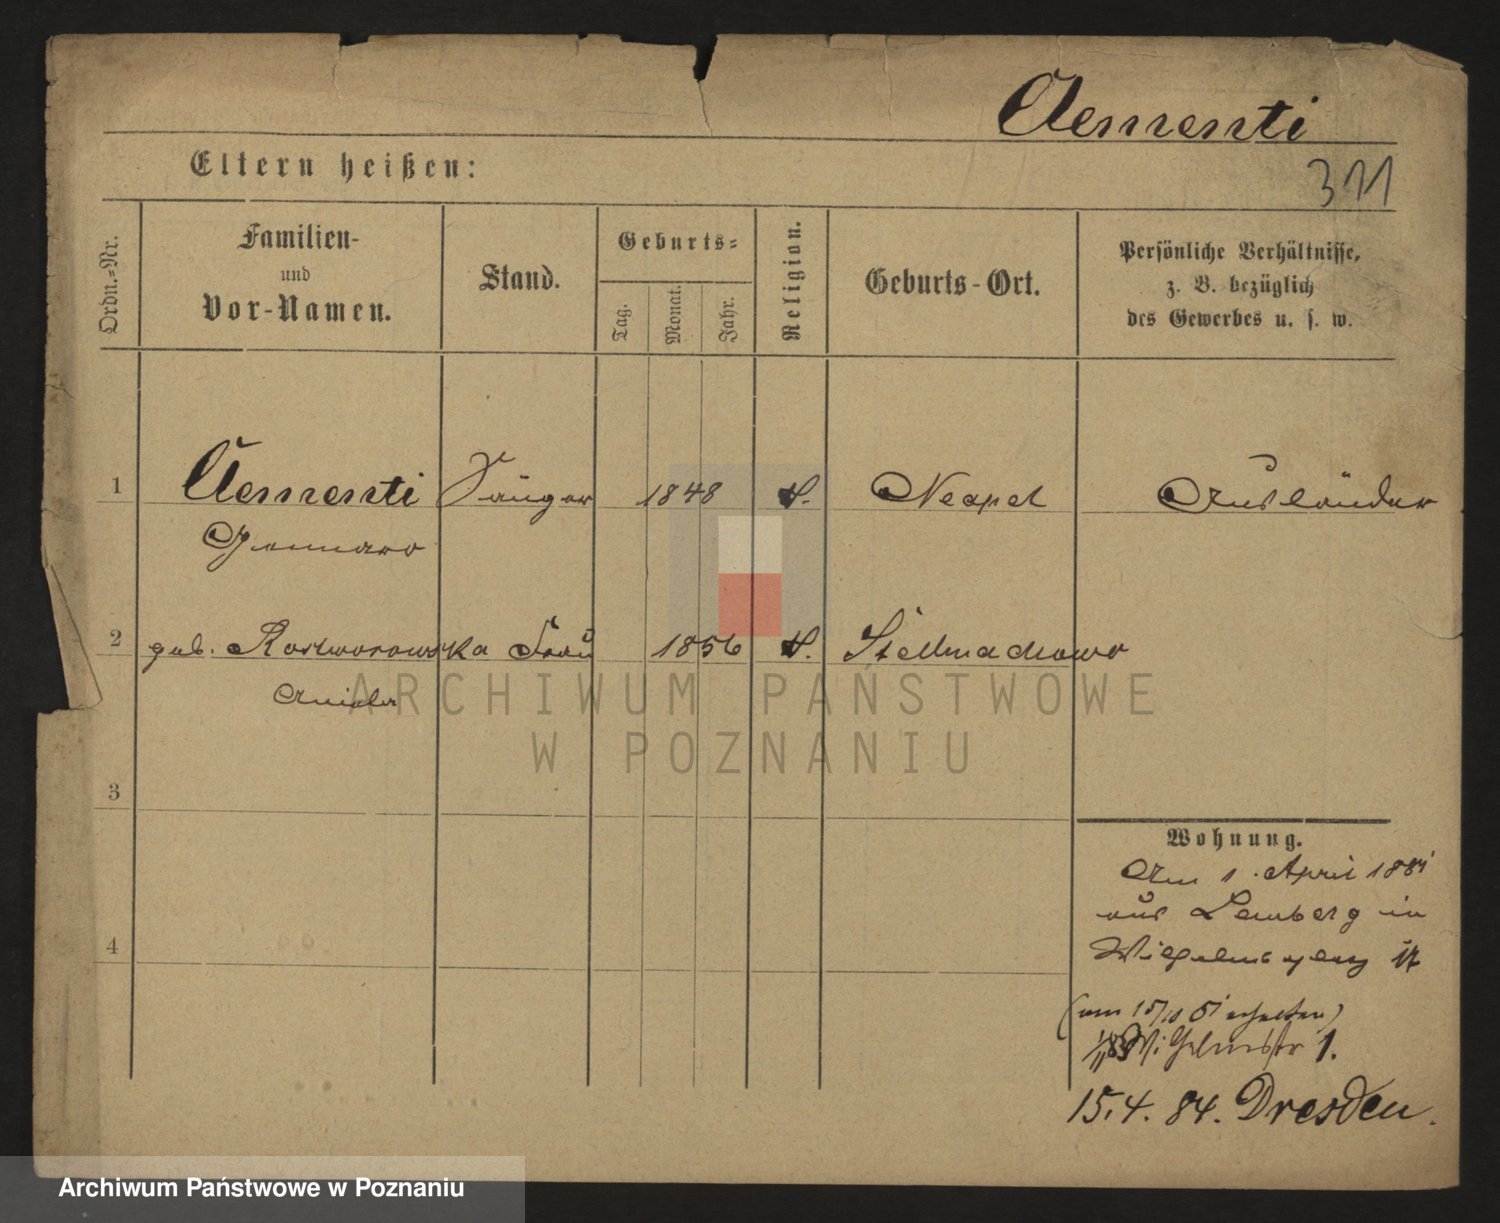 Clementi
Eltern heißen:
311
Ordn.-Nr.
Familien-
und
Vor-Namen.
Stand.
Geburts-
Tag.
Monat.
Jahr.
Religion.
Geburts-Ort.
Persönliche Verhältnisse,
z. B. bezüglich
des Gewerbes u. s. w.
1 Clementi Sänger 1848 k. Neapel Ausländer
Gennaro
2 geb. Rostworowska Frau 1856 k.
Aniela
3
4
Wohnung.
Am 1. April 1881
aus Lemberg in
Wilhelmsplatz 17
Wilhelmstr 1.
15.4.84. Dresden.
ARCHIWUM PAŃSTWOWE
W POZNANIU
Archiwum Państwowe w Poznaniu